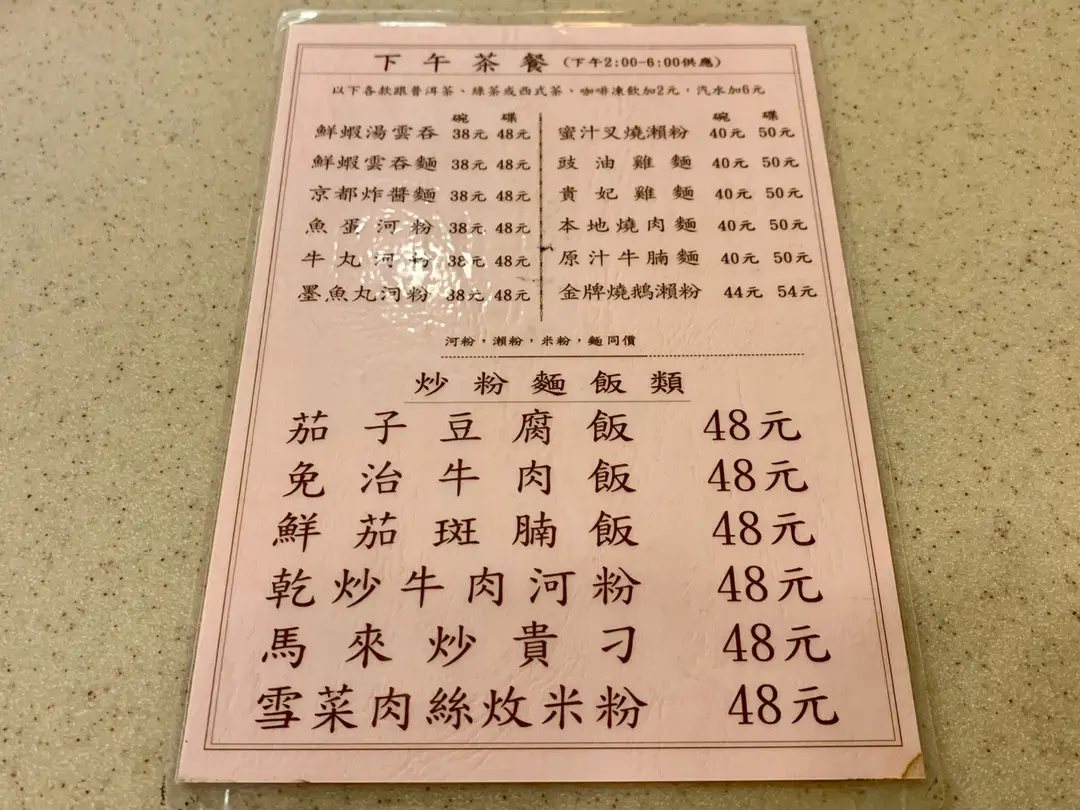 下午茶餐(下午2:00-6:00供應)
以下各款跟普洱茶、綠茶或西式茶、咖啡凍飲加2元，汽水加6元
碗 碟
鮮蝦湯雲吞 38元 48元
鮮蝦雲吞麵 38元 48元
京都炸醬麵 38元 48元
魚蛋河粉 38元 48元
牛丸河粉 38元 48元
墨魚丸河粉 38元 48元
碗 碟
蜜汁叉燒瀨粉 40元 50元
豉油雞麵 40元 50元
貴妃雞麵 40元 50元
本地燒肉麵 40元 50元
原汁牛腩麵 40元 50元
金牌燒鵝瀨粉 44元 54元
河粉，瀨粉，米粉，麵同價
炒粉麵飯類
茄子豆腐飯 48元
免治牛肉飯 48元
鮮茄斑腩飯 48元
乾炒牛肉河粉 48元
馬來炒貴刁 48元
雪菜肉絲炆米粉 48元